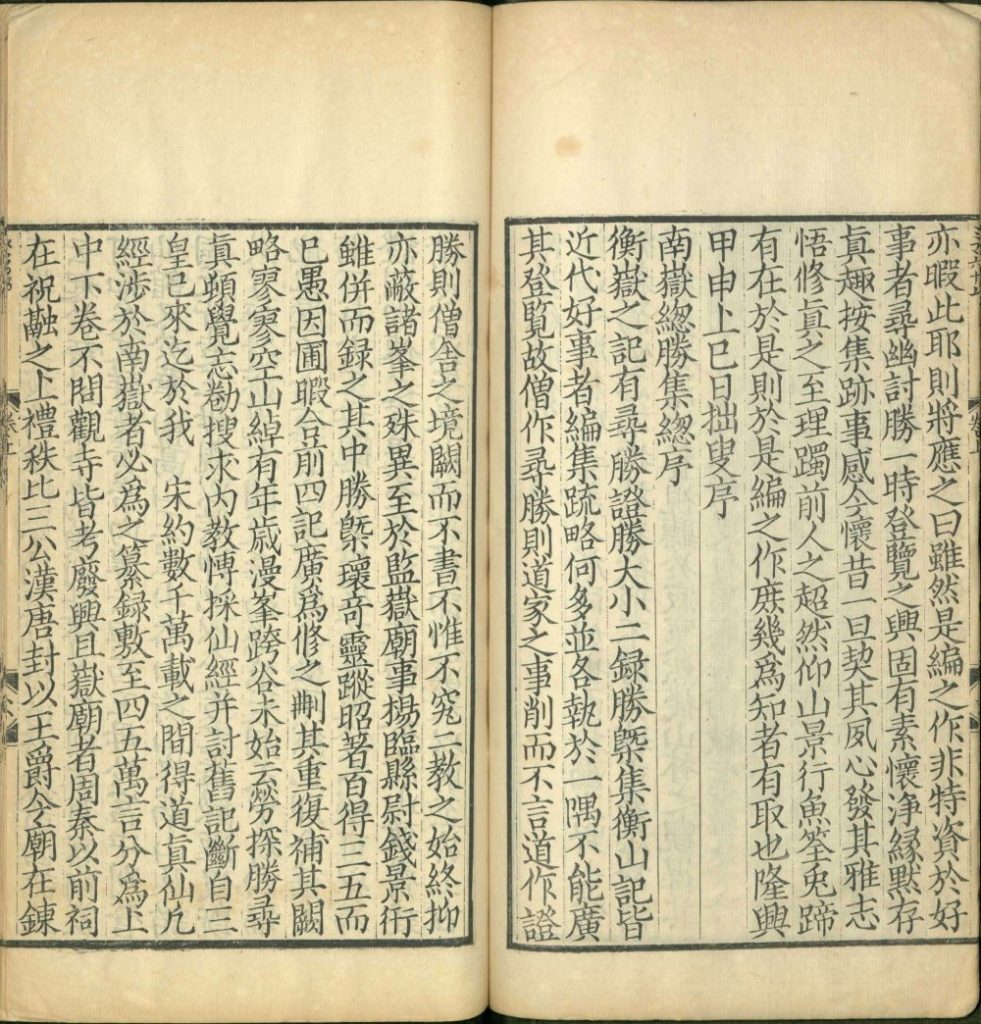 亦暇此耶則將應之曰雖然是編之作非特資於好
事者尋幽討勝一時登覽之興固有素懷浄縁默存
真趣按集跡事感今懷昔一旦契其夙心發其雅志
悟修真之至理躅前人之超然仰山景行魚筌兎蹄
有在於是則於是編之作庶幾為知者有取也隆興
甲申上巳日拙叟序
南嶽緫勝集緫序
衡嶽之記有尋勝證勝大小二録勝槩集衡山記皆
近代好事者編集䟽略何多並各執於一隅不能廣
其登覧故僧作尋勝則道家之事削而不言道作證
勝則僧舎之境闕而不書不惟不究二教之始終抑
亦蔽諸峯之殊異至於監嶽廟事楊臨縣尉錢景衎
雖併而録之其中勝槩瓌竒靈蹤昭著百得三五而
巳愚因圃暇合前四記廣為修之刪其重復補其闕
略寥寥空山綽有年歳漫峯跨谷未始云勞探勝尋
真頓覺忘勌搜求內教博採仙經并討舊記斷自三
皇巳來迄於我　宋約數千萬載之間得道真仙凡
經涉於南嶽者必為之纂録敷至四五萬言分為上
中下卷不問觀寺皆考廢興且嶽廟者周秦以前祠
在祝融之上禮秩比三公漢唐封以王爵今廟在鍊